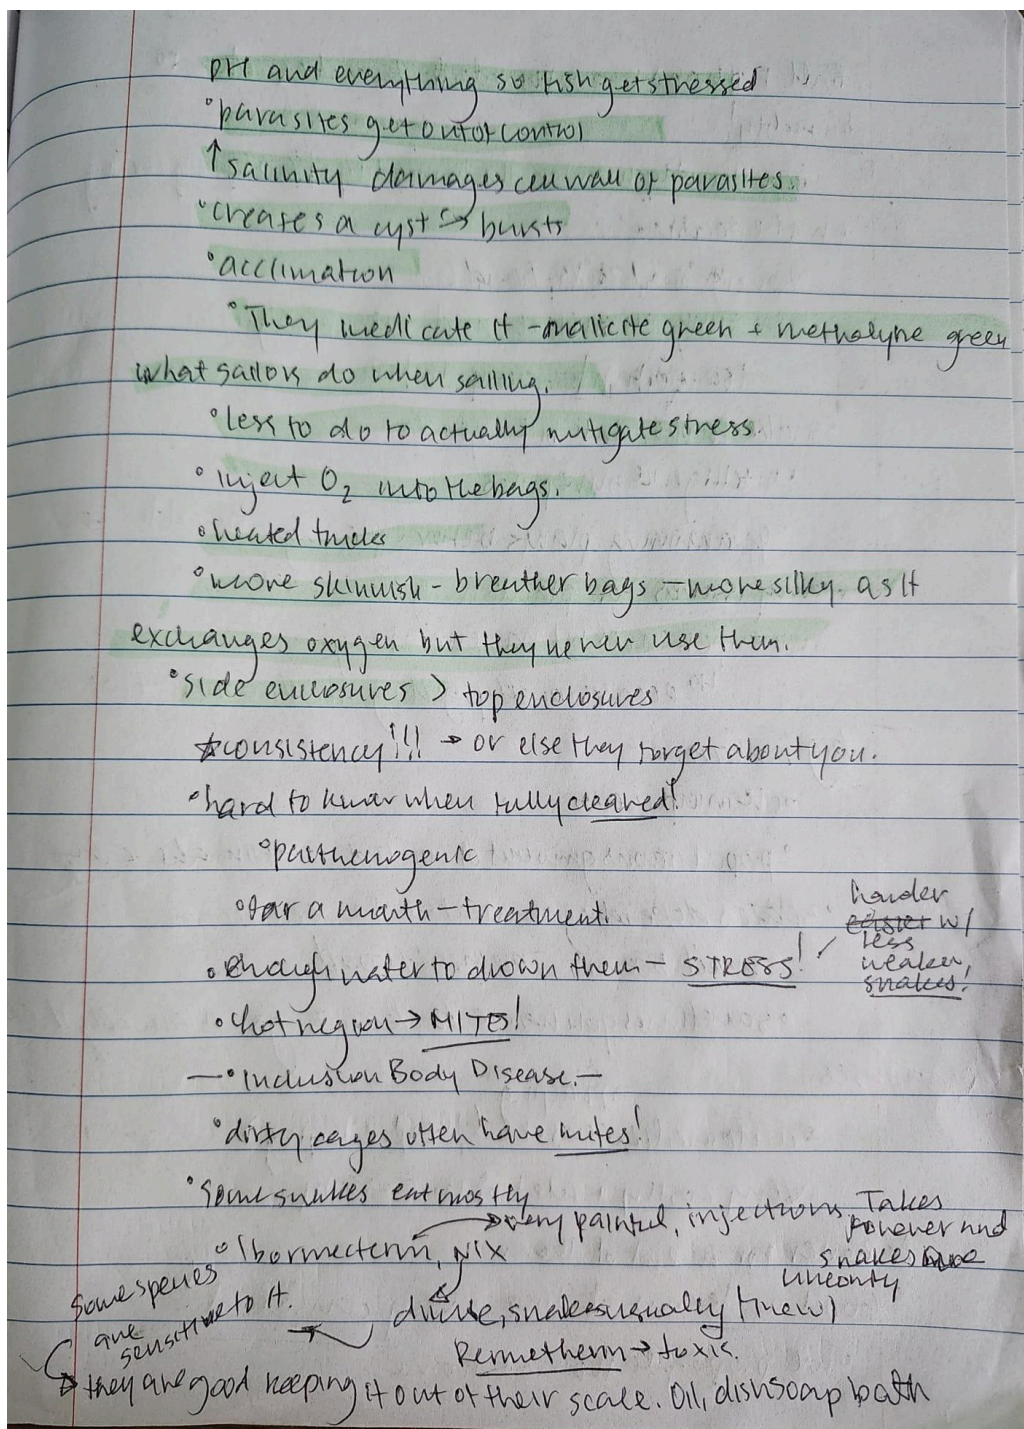 pH and everything so fish get stressed
°parasites get out of control
↑ salinity damages cell wall of parasites.
°creates a cyst ↪ bursts
°acclimation
°They medicate it - malicite green + metholyne green
what sailors do when sailing.
°less to do to actually mitigate stress.
°inject O₂ into the bags.
°heated trucks
°more skinnish - breather bags - more silky. as it
exchanges oxygen but they never use them.
°side enclosures > top enclosures
☆consistency!!! → or else they forget about you.
°hard to know when fully cleared!
°parthenogenic
°for a month - treatment.
harder
easier w/
less
weaker,
snakes!
°enough water to drown them - STRESS!
°hot region → MITES!
—°Inclusion Body Disease.—
°dirty cages often have mites!
°some snakes eat mostly
→ very painful, injections, Takes
forever and
snakes are
°Ibormecterin, NIX
some species
are
sensitive to it.
dilute, snakes usually (new)
Permetherin → toxic.
→ they are good keeping it out of their scale. Oil, dish soap bath